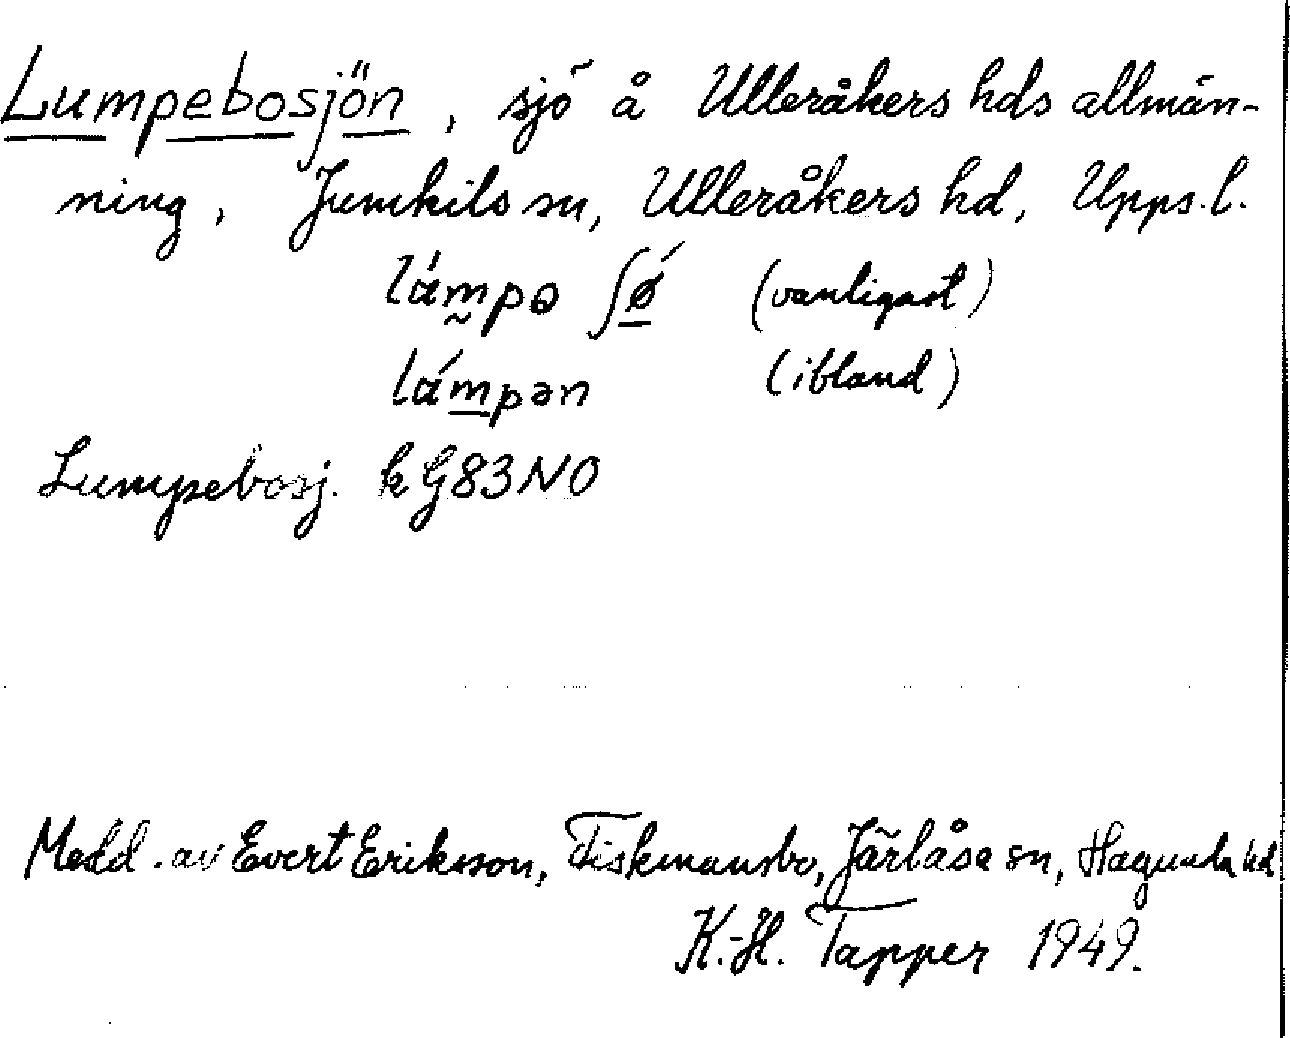 Lumpebosjön, sjö å Ulleråkers hds allmän-
ning, Jumkils sn, Ulleråkers hd, Upps. l.
lámpə ʃǿ (vanligast)
lámpən (ibland)
Lumpebosj. k G83NO
Medd. av Evert Eriksson, Fiskmansbo, Järlåsa sn, Hagunda hd
K.-H. Tapper 1949.